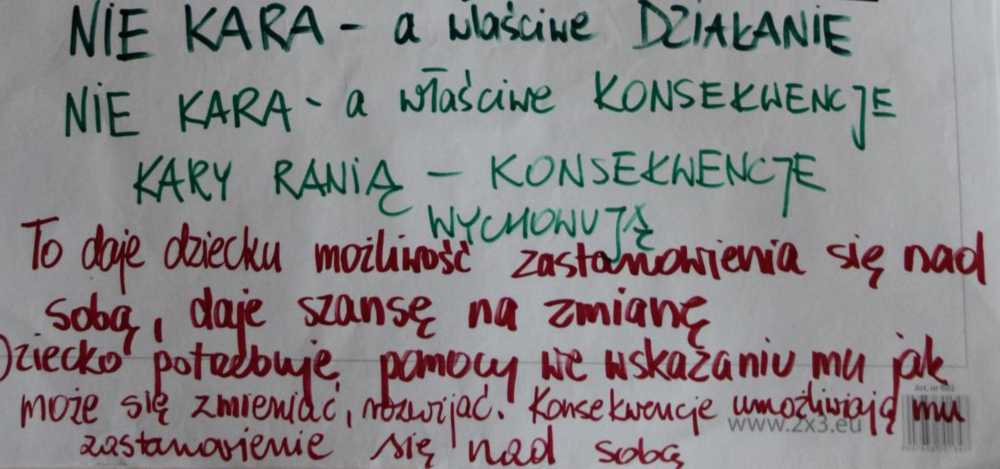 NIE KARA - a właściwe DZIAŁANIE
NIE KARA - a właściwe KONSEKWENCJE
KARY RANIĄ - KONSEKWENCJE
WYCHOWUJĄ
To daje dziecku możliwość zastanowienia się nad
sobą, daje szansę na zmianę
Dziecko potrzebuje pomocy we wskazaniu mu jak
może się zmieniać, rozwijać. Konsekwencje umożliwiają mu
zastanowienie się nad sobą
www.2x3.eu